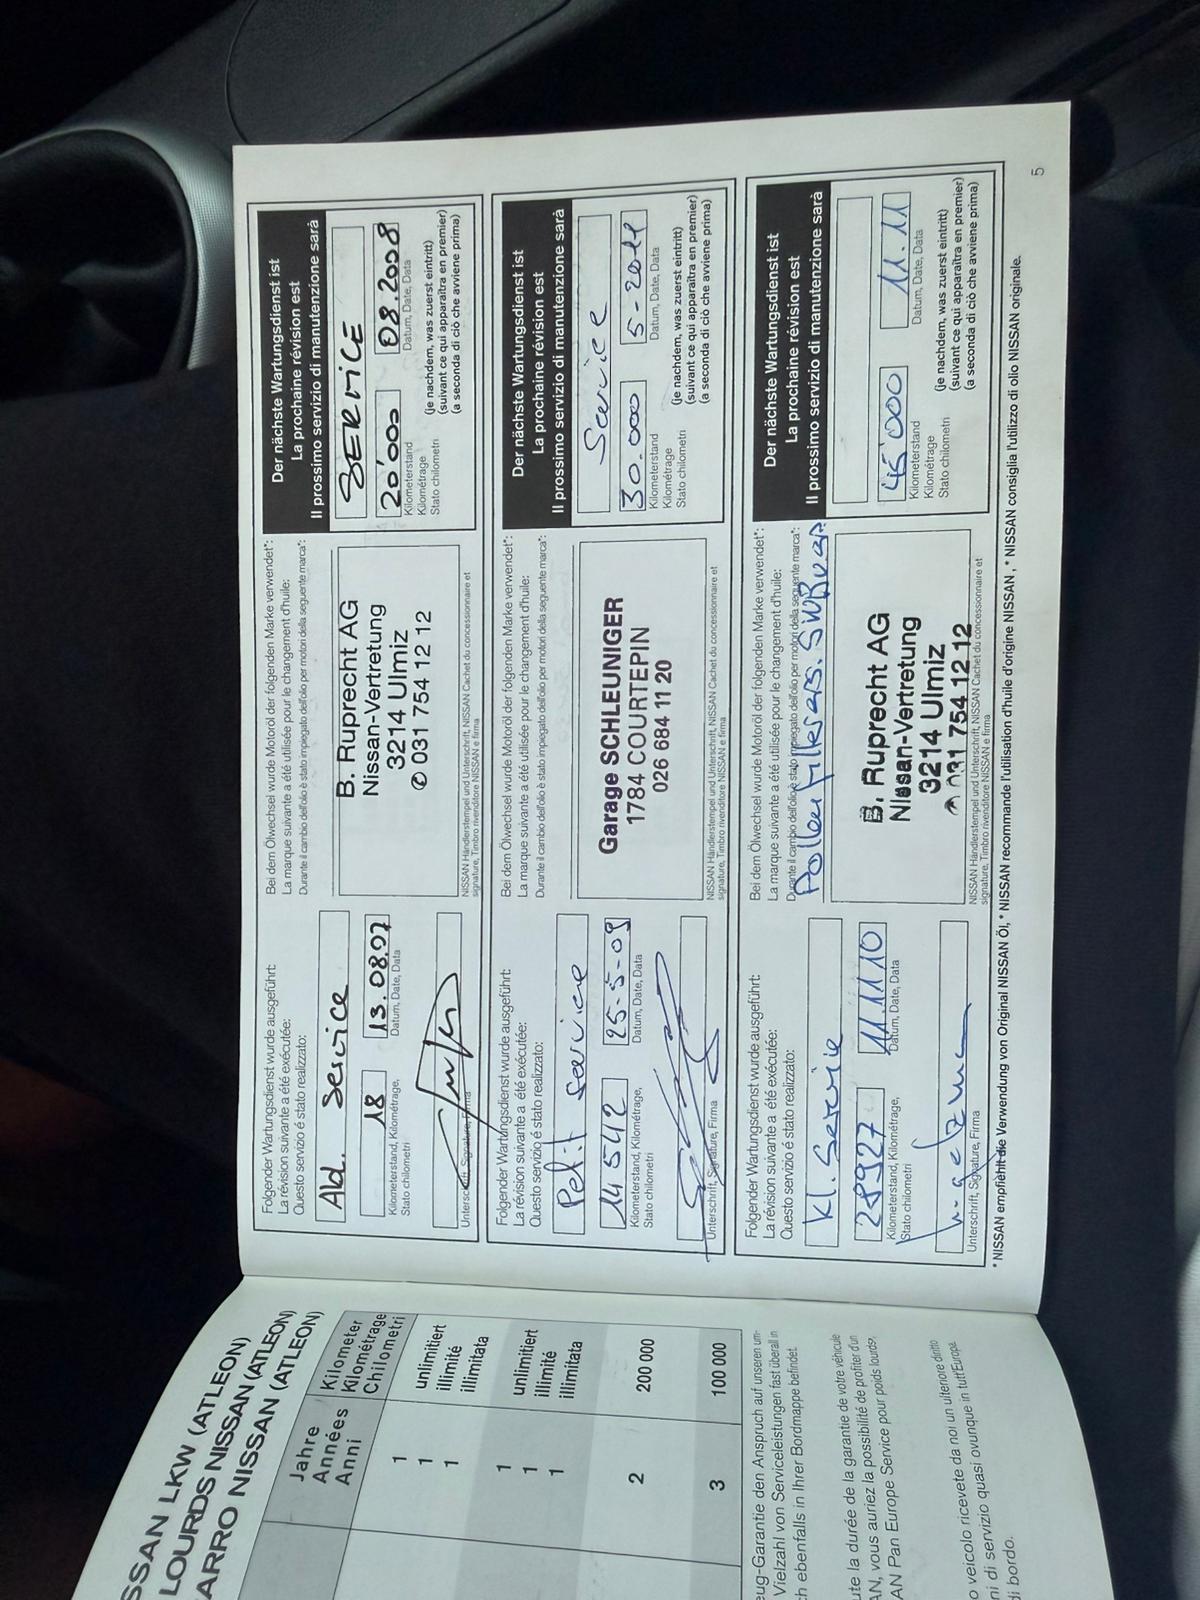 Folgender Wartungsdienst wurde ausgeführt:
La révision suivante a été exécutée:
Questo servizio é stato realizzato:
Abl. Service
18
13.08.07
Kilometerstand, Kilométrage,
Stato chilometri
Datum, Date, Data
Unterschrift, Signature, Firma
Bei dem Ölwechsel wurde Motoröl der folgenden Marke verwendet*:
La marque suivante a été utilisée pour le changement d'huile:
Durante il cambio dell'olio è stato impiegato dell'olio per motori della seguente marca*:
B. Ruprecht AG
Nissan-Vertretung
3214 Ulmiz
✆ 031 754 12 12
NISSAN Händlerstempel und Unterschrift, NISSAN Cachet du concessionnaire et
signature, Timbro rivenditore NISSAN e firma
Der nächste Wartungsdienst ist
La prochaine révision est
Il prossimo servizio di manutenzione sarà
SERVICE
20'000
08.2008
Kilometerstand
Kilométrage
Stato chilometri
Datum, Date, Data
(je nachdem, was zuerst eintritt)
(suivant ce qui apparaîtra en premier)
(a seconda di ciò che avviene prima)
Folgender Wartungsdienst wurde ausgeführt:
La révision suivante a été exécutée:
Questo servizio é stato realizzato:
Petit service
14 5542
25-5-09
Kilometerstand, Kilométrage,
Stato chilometri
Datum, Date, Data
Unterschrift, Signature, Firma
Bei dem Ölwechsel wurde Motoröl der folgenden Marke verwendet*:
La marque suivante a été utilisée pour le changement d'huile:
Durante il cambio dell'olio è stato impiegato dell'olio per motori della seguente marca*:
Garage SCHLEUNIGER
1784 COURTEPIN
026 684 11 20
NISSAN Händlerstempel und Unterschrift, NISSAN Cachet du concessionnaire et
signature, Timbro rivenditore NISSAN e firma
Der nächste Wartungsdienst ist
La prochaine révision est
Il prossimo servizio di manutenzione sarà
Service
30.000
5-2011
Kilometerstand
Kilométrage
Stato chilometri
Datum, Date, Data
(je nachdem, was zuerst eintritt)
(suivant ce qui apparaîtra en premier)
(a seconda di ciò che avviene prima)
Folgender Wartungsdienst wurde ausgeführt:
La révision suivante a été exécutée:
Questo servizio é stato realizzato:
Kl. Service
28927
11.11.10
Kilometerstand, Kilométrage,
Stato chilometri
Datum, Date, Data
Unterschrift, Signature, Firma
Bei dem Ölwechsel wurde Motoröl der folgenden Marke verwendet*:
La marque suivante a été utilisée pour le changement d'huile:
Durante il cambio dell'olio è stato impiegato dell'olio per motori della seguente marca*:
B. Ruprecht AG
Nissan-Vertretung
3214 Ulmiz
031 754 12 12
NISSAN Händlerstempel und Unterschrift, NISSAN Cachet du concessionnaire et
signature, Timbro rivenditore NISSAN e firma
Der nächste Wartungsdienst ist
La prochaine révision est
Il prossimo servizio di manutenzione sarà
45'000
11.11
Kilometerstand
Kilométrage
Stato chilometri
Datum, Date, Data
(je nachdem, was zuerst eintritt)
(suivant ce qui apparaîtra en premier)
(a seconda di ciò che avviene prima)
* NISSAN empfiehlt die Verwendung von Original NISSAN Öl, * NISSAN recommande l'utilisation d'huile d'origine NISSAN, * NISSAN consiglia l'utilizzo di olio NISSAN originale.
5
SSAN LKW (ATLEON)
LOURDS NISSAN (ATLEON)
ARRO NISSAN (ATLEON)
Jahre
Années
Anni
Kilometer
Kilométrage
Chilometri
1
1
1
unlimitiert
illimité
illimitata
1
1
1
unlimitiert
illimité
illimitata
2
200 000
3
100 000
eug-Garantie den Anspruch auf unseren um-
Vielzahl von Serviceleistungen fast überall in
ch ebenfalls in Ihrer Bordmappe befindet.
ute la durée de la garantie de votre véhicule
AN, vous auriez la possibilité de profiter d'un
AN Pan Europe Service pour poids lourds,
o veicolo ricevete da noi un ulteriore diritto
ni di servizio quasi ovunque in tutt'Europa.
di bordo.